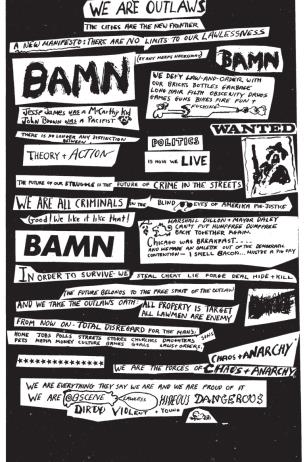 WE ARE OUTLAWS
THE CITIES ARE THE NEW FRONTIER
A NEW MANIFESTO: THERE ARE NO LIMITS TO OUR LAWLESSNESS
(BY ANY MEANS NECESSARY)
BAMN
BAMN
WE DEFY LAW-AND-ORDER, WITH
OUR BRICKS BOTTLES GARBAGE
LONG HAIR FILTH OBSCENITY DRUGS
GAMES GUNS BIKES FIRE FUN +
FUCKING
Jesse James was a McCarthy kid
John Brown was a Pacifist
WANTED
THERE IS NO LONGER ANY DISTINCTION
BETWEEN
THEORY + ACTION
POLITICS
IS HOW WE LIVE
THE FUTURE OF OUR STRUGGLE IS THE FUTURE OF CRIME IN THE STREETS
WE ARE ALL CRIMINALS IN THE BLIND EYES OF AMERIKA PIG-JUSTICE
Good! We like it like that!
MARSHALL DILLON + MAYOR DALEY
CAN'T PUT HUMPFREE DUMPFREE
BACK TOGETHER AGAIN.
BAMN
CHICAGO WAS BREAKFAST....
AND WE MADE AN OMLETTE OUT OF THE DEMOCRATIC
CONVENTION — I SMELL BACON... MAYBE A PIG FRY
IN ORDER TO SURVIVE WE STEAL CHEAT LIE FORGE DEAL HIDE + KILL
THE FUTURE BELONGS TO THE FREE SPIRIT OF THE OUTLAW
AND WE TAKE THE OUTLAWS OATH: ALL PROPERTY IS TARGET
ALL LAWMEN ARE ENEMY
FROM NOW ON - TOTAL DISREGARD FOR THE MAN'S:
HOME JOBS POLLS STREETS STORES CHURCHES DAUGHTERS SONS
PETS MEDIA MONEY CULTURE GAMES GOALS
CHAOS + ANARCHY
WE ARE THE FORCES OF CHAOS + ANARCHY.
WE ARE EVERYTHING THEY SAY WE ARE AND WE ARE PROUD OF IT
WE ARE OBSCENE LAWLESS HIDEOUS DANGEROUS
DIRTY VIOLENT + YOUNG